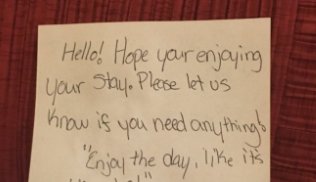 Hello! Hope your enjoying
your stay. Please let us
know if you need anything!
"Enjoy the day, like it's